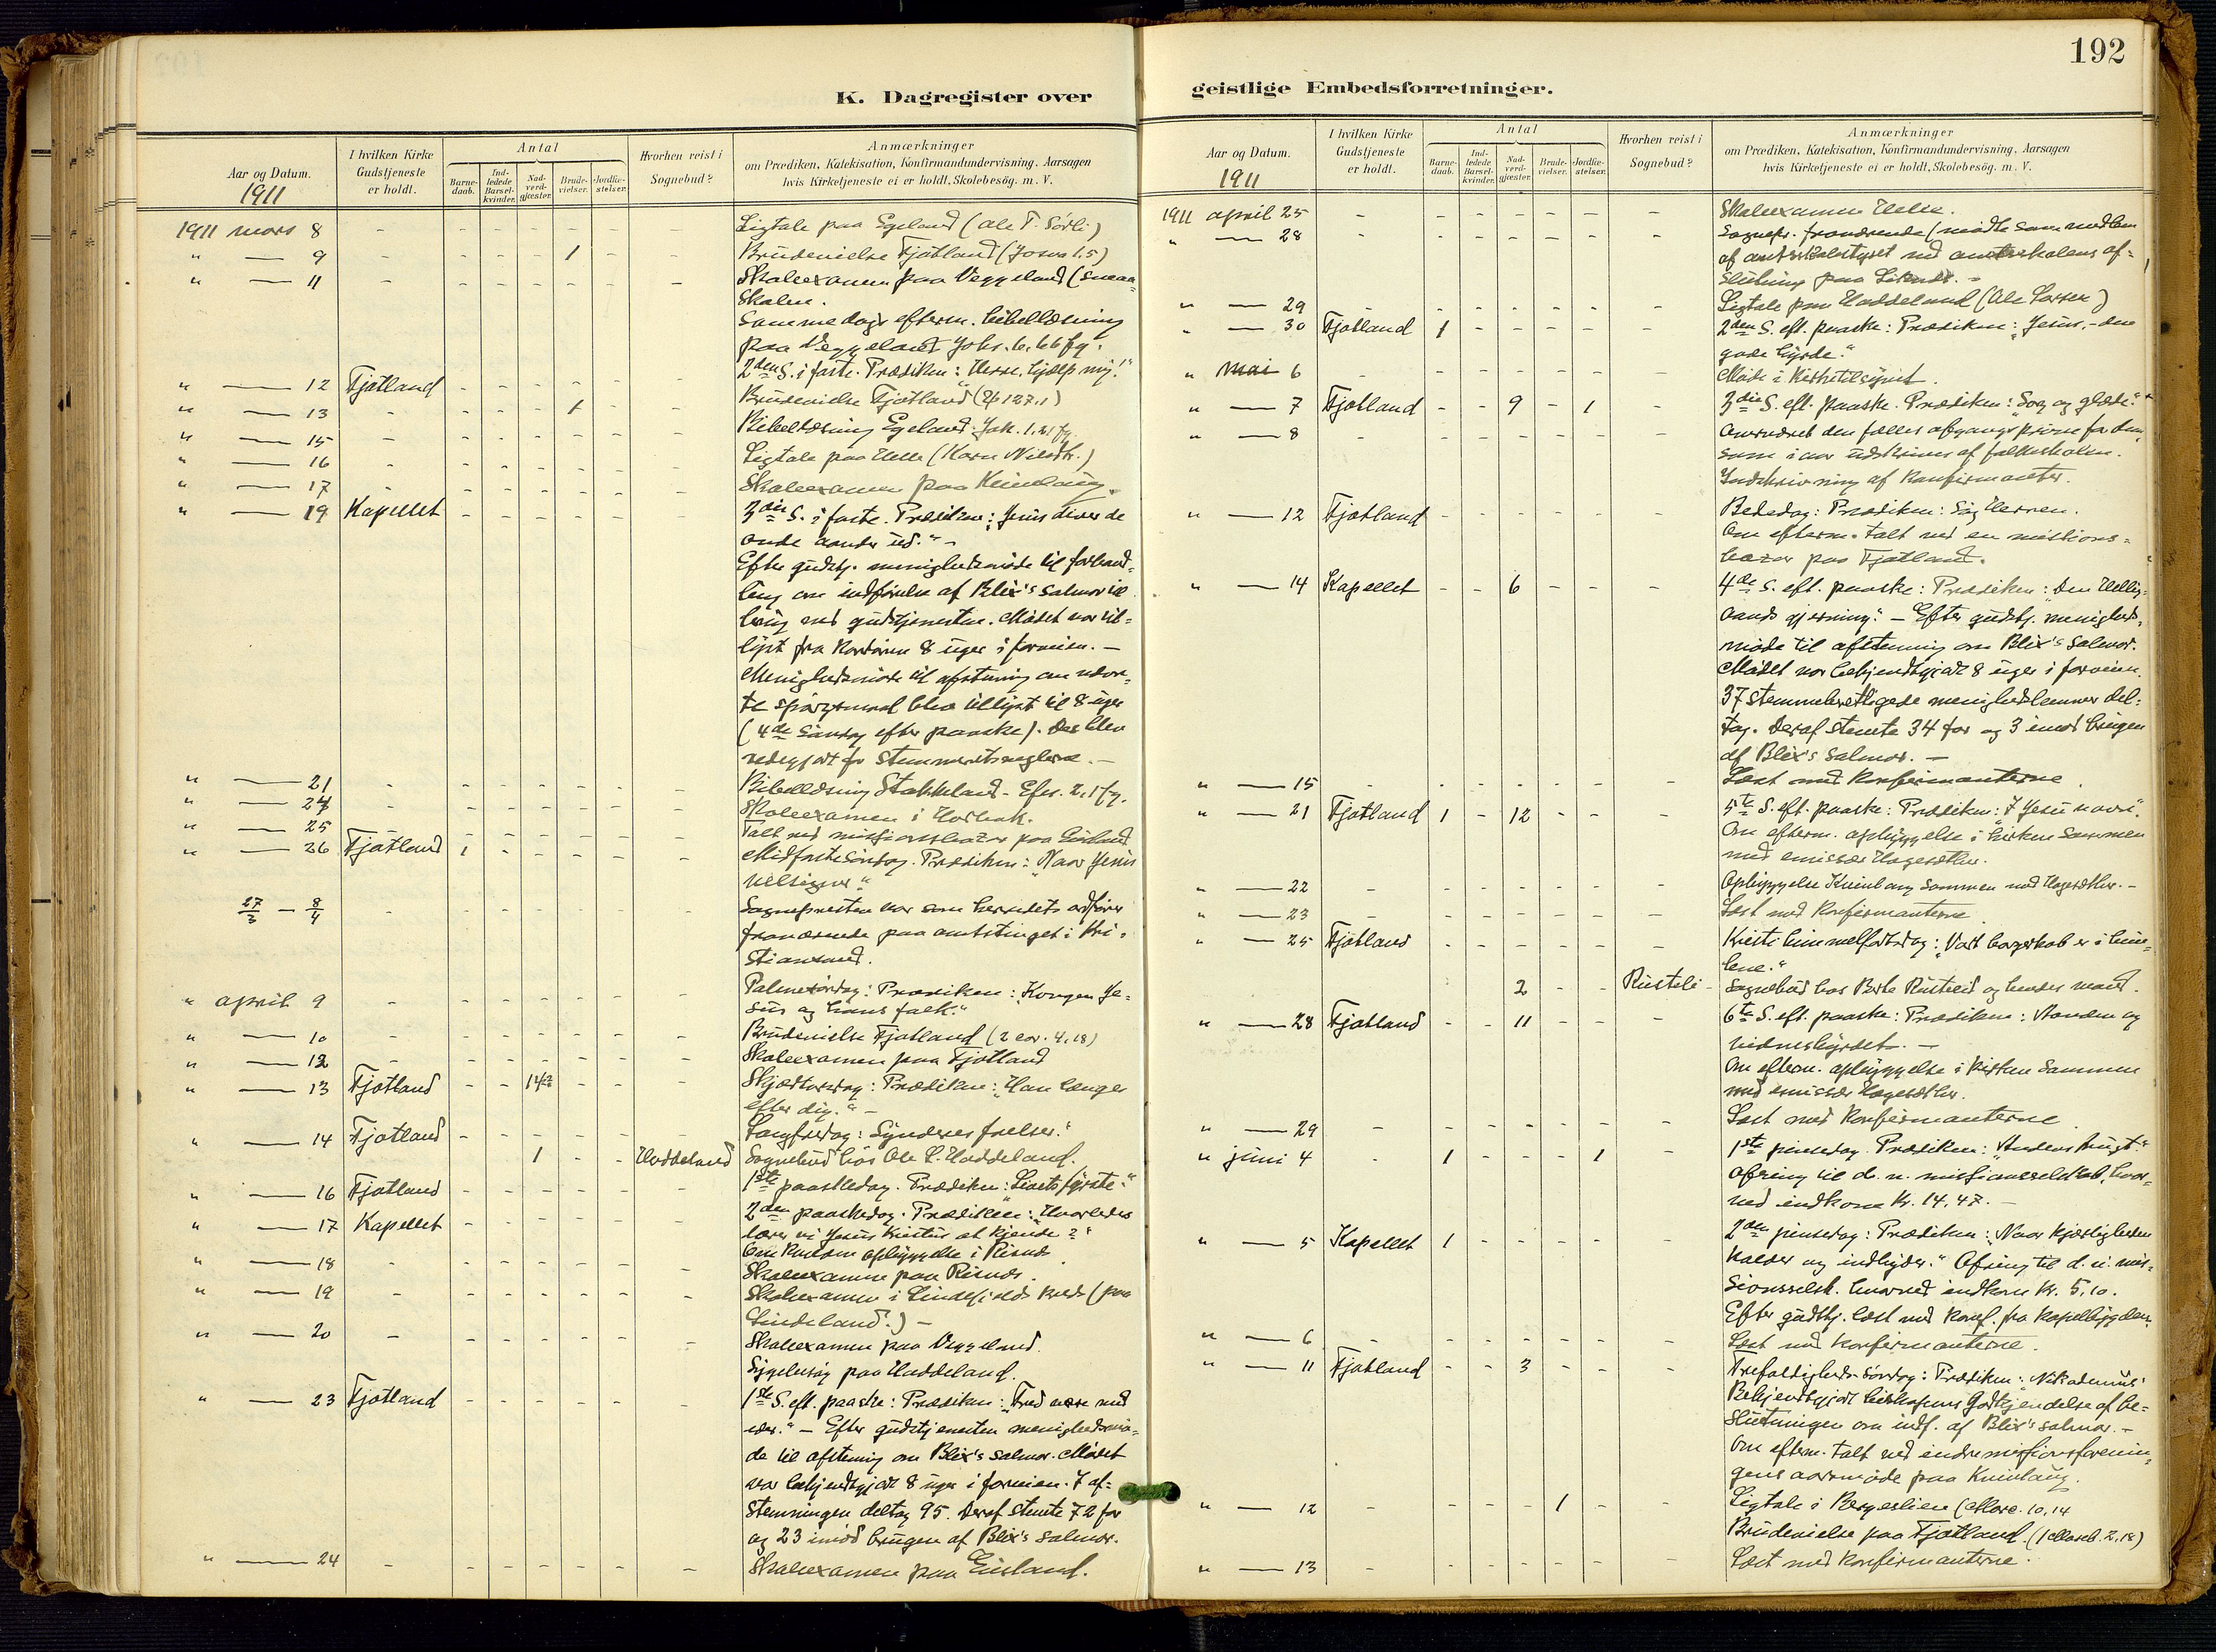 192
K. Dagregister over
geistlige Embedsforretninger.
Aar og Datum.
1911
I hvilken Kirke
Gudstjeneste
er holdt.
Antal
Barne-
daab.
Ind-
ledede
Barsel-
kvinder.
Nad-
verd-
gjæster.
Brude-
vielser.
Jordfæ-
stelser.
Hvorhen reist i
Sognebud?
Anmærkninger
om Prædiken, Katekisation, Konfirmandundervisning, Aarsagen
hvis Kirketjeneste ei er holdt, Skolebesøg. m. V.
1911 mars 8 - - - - - - - Ligtale paa Egeland (Ole T. Sörli)
" — 9 - - - - 1 - - Brudevielse Fjotland (Josva 1.5)
" — 11 - - - - - - - Skoleexamen paa Veggeland (smaa-
skolen.
Samme dags efterm. bibellæsning
paa Veggeland Joh. 6. 66 fg.
" — 12 Fjotland - - - - - - 2den S. i faste. Prædiken: "Herre, hjælp mig!"
" — 13 - - - - 1 - - Brudevielse Fjotland (Ψ 127,1)
" — 15 - - - - - - - Bibellæsning Egeland. Jak. 1.21 fg.
" — 16 - - - - - - - Ligtale paa Helle (Karn Nilsdtr.)
" — 17 - - - - - - - Skoleexamen paa Kvinlaug.
" — 19 Kapellet - - - - - - 3die S. i faste. Prædiken: "Jesus driver de
onde aander ud." -
Efter gudstj. menighedsmöde til forhand-
ling om indförelse af Blix's salmer til
brug ved gudstjenesten. Mödet var til-
lyst fra kordören 8 uger i forveien. —
Menighedsmöde til afstemning om nævn-
te spörgsmaal blev tillyst til 8 uger
(4de söndag efter paaske). Der blev
redegjort for stemmeretsreglerne. —
" — 21 - - - - - - - Bibellæsning Stakkeland - Efes. 2,1 fg.
" — 24 - - - - - - - Skoleexamen i
" — 25 - - - - - - - Talt ved missionsbazar paa
" — 26 Fjotland 1 - - - - - Midfastesöndag. Prædiken: "Naar Jesus
velsigner."
27/3 — 8/4 - - - - - - - Sognepresten var som herredets ordförer
fraværende paa amtstinget i Kri-
stiansand.
" april 9 - - - - - - - Palmesöndag: Prædiken: "Kongen Je-
sus og hans folk."
" — 10 - - - - - - - Brudevielse Fjotland (2 cor. 4,18)
" — 12 - - - - - - - Skoleexamen paa Fjotland
" — 13 Fjotland - - 14 - - - Skjærtorsdag: Prædiken: "Han længes
efter dig." —
" — 14 Fjotland - - - - - - Langfredag: "Synderes frelser."
1 - - Haddeland Sognebud hos Ole L. Haddeland.
" — 16 Fjotland - - - - - - 1ste paaskedag. Prædiken: "Livets fyrste."
" — 17 Kapellet - - - - - - 2den paaskedag. Prædiken: "Hvorledes
lærer vi Jesus Kristus at kjende?"
Om kvelden opbyggelse i Risnes
" — 18 - - - - - - - Skoleexamen paa Risnes.
" — 19 - - - - - - - Skoleexamen i Lindefjelds kreds (paa
Lindeland.) —
" — 20 - - - - - - - Skoleexamen paa Veggeland.
Sygebesög paa Haddeland.
" — 23 Fjotland - - - - - - 1ste S. eft. paaske: Prædiken: "Fred være med
eder." — Efter gudstjenesten menighedsmö-
de til afstemning om Blix's salmer. Mödet
var bekjendtgjort 8 uger i forveien. I af-
stemningen deltog 95. Deraf stemte 72 for
og 23 imod brugen af Blix's salmer.
" — 24 - - - - - - - Skoleexamen paa Eiesland.
Aar og Datum.
1911
I hvilken Kirke
Gudstjeneste
er holdt.
Antal
Barne-
daab.
Ind-
ledede
Barsel-
kvinder.
Nad-
verd-
gjæster.
Brude-
vielser.
Jordfæ-
stelser.
Hvorhen reist i
Sognebud?
Anmærkninger
om Prædiken, Katekisation, Konfirmandundervisning, Aarsagen
hvis Kirketjeneste ei er holdt, Skolebesög. m. V.
1911 april 25 - - - - - - - Skoleexamen Helle.
" — 28 - - - - - - - Sognepr. fraværende (mödte som medlem
af amtsskolestyret ved amtsskolens af-
slutning paa Liknes. —
" — 29 - - - - - - - Ligtale paa Haddeland (Ole Larsen)
" — 30 Fjotland 1 - - - - - 2den S. eft. paaske: Prædiken: "Jesus, - den
gode hyrde."
" mai 6 - - - - - - - Möde i kirketilsynet.
" — 7 Fjotland - - 9 - 1 - 3die S. eft. paaske. Prædiken: "Sorg og glæde."
" — 8 - - - - - - - Overværet den fælles afgangspröve for dem,
som iaar udskrives af folkeskolen.
Indskrivning af konfirmanter.
" — 12 Fjotland - - - - - - Bededag: Prædiken: Sög Herren.
Om efterm. talt ved en missions-
bazar paa Fjotland.
" — 14 Kapellet - - 6 - - - 4de S. eft. paaske: Prædiken: "Den Hellig-
aands gjerning." — Efter gudstj. menigheds-
möde til afstemning om Blix's salmer.
Mödet var bekjendtgjort 8 uger i forveien.
37 stemmeberettigede menighedslemmer del-
tog. Deraf stemte 34 for og 3 imod brugen
af Blix's salmer. —
" — 15 - - - - - - - Læst med konfirmanterne.
" — 21 Fjotland 1 - 12 - - - 5te S. eft. paaske: Prædiken: "I Jesu navn."
Om efterm. opbyggelse i kirken sammen
med emissær Hagesæther.
" — 22 - - - - - - - Opbyggelse Kvinlaug sammen med Hagesæther. —
" — 23 - - - - - - - Læst med konfirmanterne
" — 25 Fjotland - - - - - - Kristi himmelfartsdag: "Vort borgerskab er i him-
lene."
2 - - Rusteli - Sognebud hos Berte Rusteli og hendes mand.
" — 28 Fjotland - - 11 - - - 6te S. eft. paaske: Prædiken: Aanden og
vidnesbyrdet. —
Om efterm. opbyggelse i kirken sammen
med emissær Hagesæther.
" — 29 - - - - - - - Læst med konfirmanterne
" juni 4 - 1 - - - 1 - 1ste pinsedag. Prædiken: "Aandens frugt."
Ofring til d. n. missionsselskab, hvor-
ved indkom Kr. 14,47. —
" — 5 Kapellet 1 - - - - - 2den pinsedag: Prædiken: "Naar kjærligheden
kalder og indbyder." Ofring til d. n. mis-
sionsselsk. hvorved indkom Kr. 5,10.
Efter gudstj. læst med konf. fra kapelbygden.
" — 6 - - - - - - - Læst med konfirmanterne.
" — 11 Fjotland - - 3 - - - Trefoldigheds-söndag: Prædiken: "Nikodemus"
Bekjendtgjort biskopens godkjendelse af be-
slutningen om indf. af Blix's salmer. —
Om efterm. talt ved indremissionsforenin-
gens aarsmöde paa Kvinlaug.
" — 12 - - - - 1 - - Ligtale i Bergeslien (Marc. 10,14
Brudevielse paa Fjotland. (1 Moseb. 2,18)
" — 13 - - - - - - - Læst med konfirmanterne.